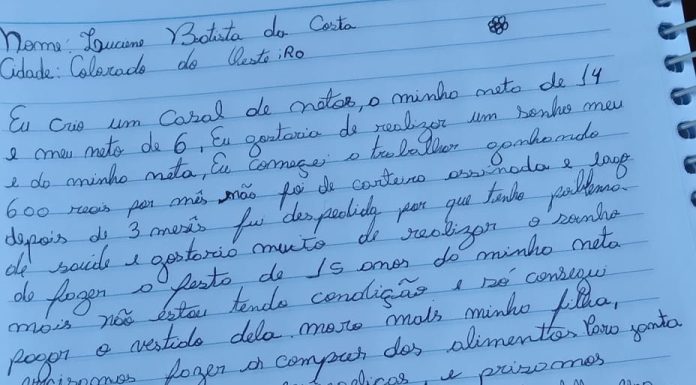 Nome: Luciene Batista da Costa
Cidade: Colorado do Oeste iRo
Eu crio um Casal de netos, a minha neta de 14
e meu neto de 6, Eu gostaria de realizar um sonho meu
e da minha neta, Eu começei a trabalhar ganhando
600 reais por mês não foi de carteira assinada e logo
depois de 3 meses fui despedida por que tenho problema
de saúde e gostaria muito de realizar o sonho
de fazer a festa de 15 anos da minha neta
mais não estou tendo condição e só consegui
pagar o vestido dela. moro mais minha filha,
fazer as compras dos alimentos Para janta
e prisamos